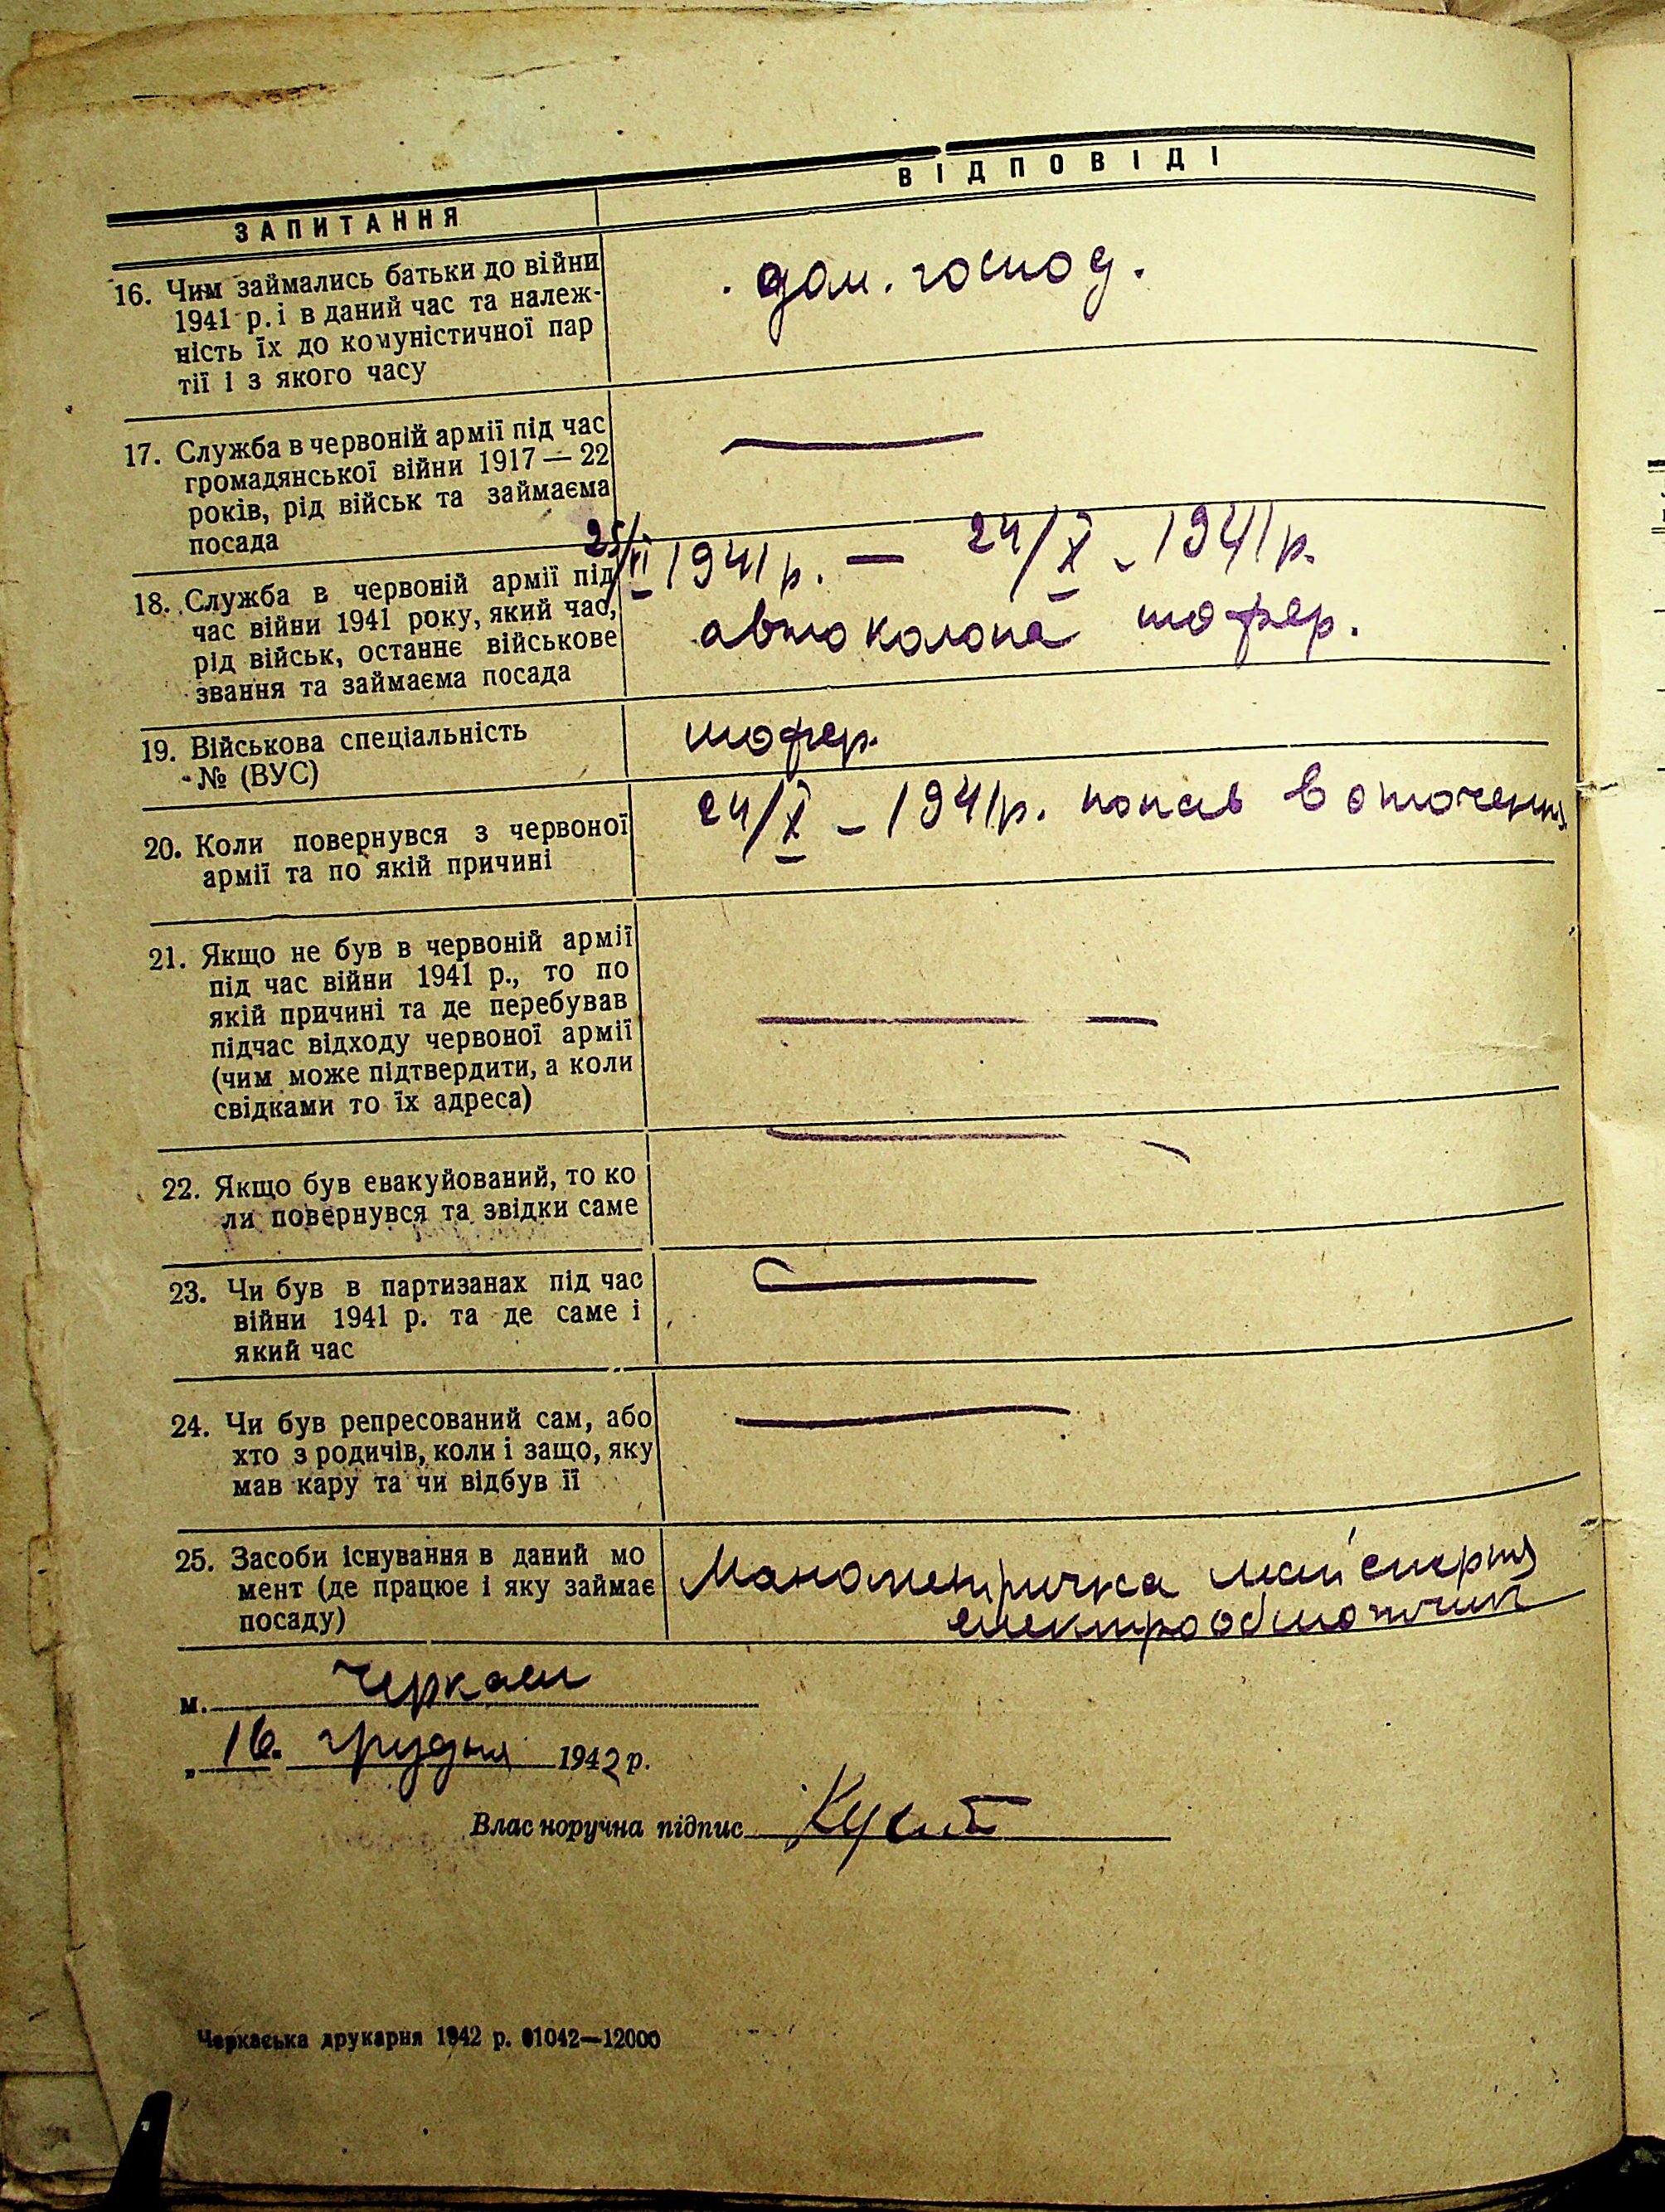 ЗАПИТАННЯ
ВІДПОВІДІ
16. Чим займались батьки до війни
1941 р. і в даний час та належ-
ність їх до комуністичної пар
тії і з якого часу
дом. господ.
17. Служба в червоній армії під час
громадянської війни 1917 — 22
років, рід військ та займаєма
посада
18. Служба в червоній армії під
час війни 1941 року, який час,
рід військ, останнє військове
звання та займаєма посада
1941 р. — 24/X - 1941 р.
автоколона шофер.
19. Військова спеціальність
№ (ВУС)
шофер.
20. Коли повернувся з червоної
армії та по якій причині
24/X - 1941 р. попав в оточення
21. Якщо не був в червоній армії
під час війни 1941 р., то по
якій причині та де перебував
підчас відходу червоної армії
(чим може підтвердити, а коли
свідками то їх адреса)
22. Якщо був евакуйований, то ко
ли повернувся та звідки саме
23. Чи був в партизанах під час
війни 1941 р. та де саме і
який час
24. Чи був репресований сам, або
хто з родичів, коли і защо, яку
мав кару та чи відбув її
25. Засоби існування в даний мо
мент (де працює і яку займає
посаду)
Манометрична майстерня
електрообмотчик
м. Черкаси
„ 16. грудня 1942 р.
Власноручна підпис
Черкаська друкарня 1942 р. 01042—12000